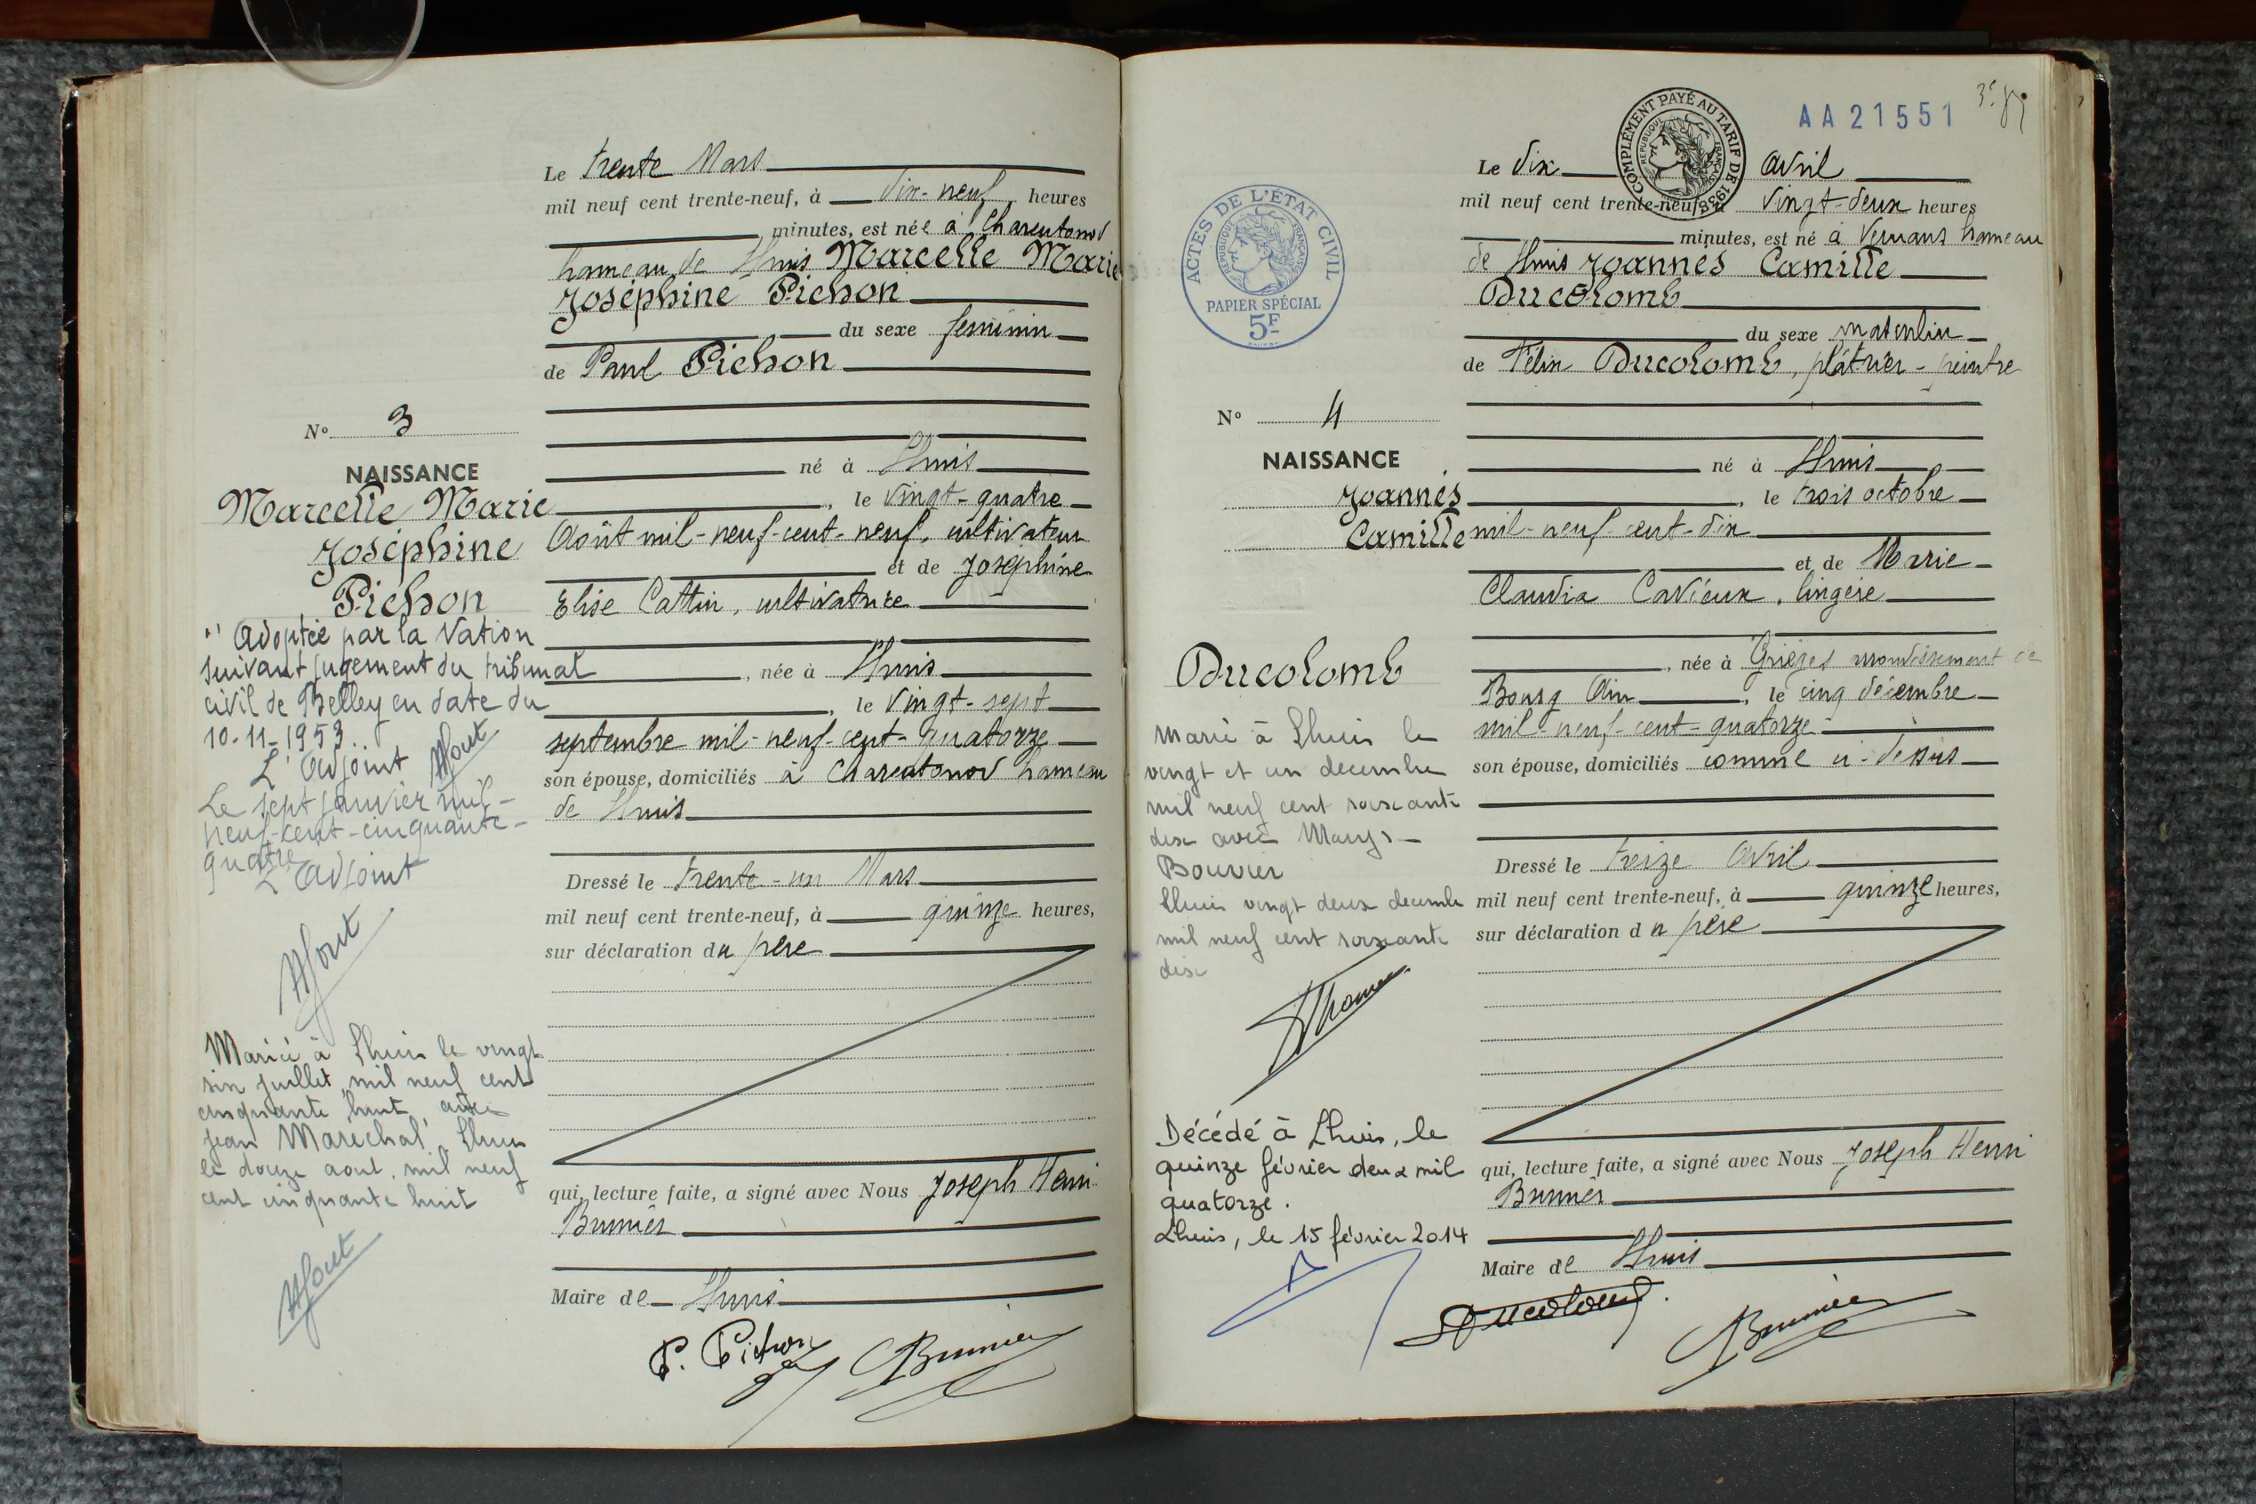 Le trente Mars
mil neuf cent trente-neuf, à dix-neuf heures
minutes, est née à Charentonod
hameau de Lhuis Marcelle Marie
Joséphine Pichon
du sexe féminin
de Paul Pichon
né à Lhuis
, le vingt-quatre
Août mil-neuf-cent-neuf, cultivateur
et de Joséphine
Elise Cattin, cultivatrice
, née à Lhuis
, le vingt-sept
septembre mil-neuf-cent-quatorze
son épouse, domiciliés à Charentonod hameau
de Lhuis
Dressé le trente-un Mars
mil neuf cent trente-neuf, à quinze heures,
sur déclaration du père
qui, lecture faite, a signé avec Nous Joseph Henri
Brunier
Maire de Lhuis
P. Pichon Brunier
No 3
NAISSANCE
Marcelle Marie
Joséphine
Pichon
"Adoptée par la Nation
suivant jugement du tribunal
civil de Belley en date du
10-11-1953
L'Adjoint
Le sept janvier mil-
neuf-cent-cinquante-
quatre
L'Adjoint
Mariée à Lhuis le vingt
six juillet mil neuf cent
cinquante huit, avec
Jean Maréchal. Lhuis
le douze aout mil neuf
cent cinquante huit
AA21551
COMPLÉMENT PAYÉ AU TARIF DE 1938
REPUBLIQUE FRANÇAISE
Le dix avril
mil neuf cent trente-neuf, à vingt-deux heures
minutes, est né à Vernans hameau
de Lhuis Joannès Camille
Ducolomb
du sexe masculin
de Félix Ducolomb, plâtrier-peintre
né à Lhuis
, le trois octobre
mil-neuf-cent-dix
et de Marie
Claudia Cavieux, lingère
, née à Grièges arrondissement de
Bourg Ain, le cinq décembre
mil-neuf-cent-quatorze
son épouse, domiciliés comme ci-dessus
Dressé le treize Avril
mil neuf cent trente-neuf, à quinze heures,
sur déclaration du père
qui, lecture faite, a signé avec Nous Joseph Henri
Brunier
Maire de Lhuis
Ducolomb Brunier
ACTES DE L'ÉTAT CIVIL
REPUBLIQUE FRANÇAISE
PAPIER SPÉCIAL
5F
No 4
NAISSANCE
Joannès
Camille
Ducolomb
Marié à Lhuis le
vingt et un decembre
mil neuf cent soixante
dix avec
Bouvier
Lhuis vingt deux decembre
mil neuf cent soixante
dix
Décédé à Lhuis, le
quinze février deux mil
quatorze.
Lhuis, le 15 février 2014